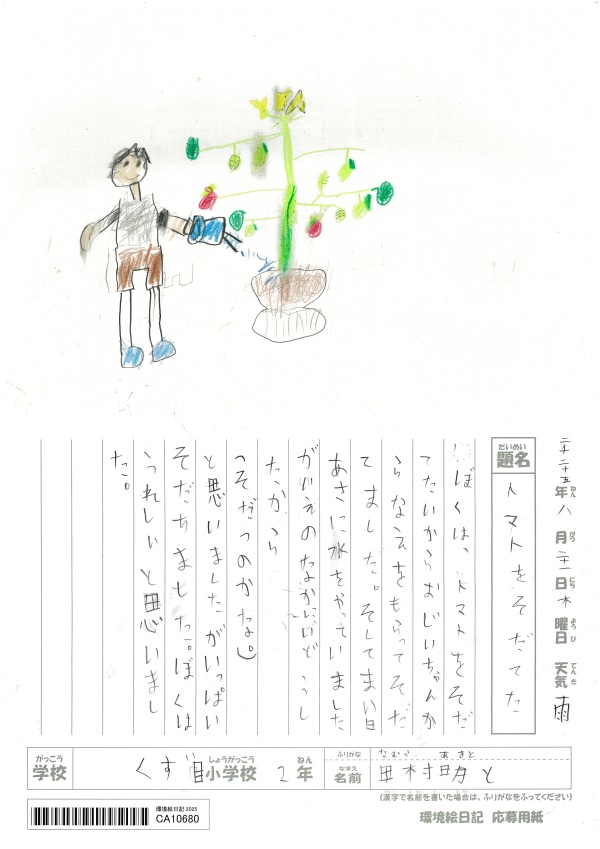 二千二十五年八月二十一日木曜日天気雨
ねん
がつ
にち
ようび
てんき
だいめい
題名
トマトをそだてた
ぼくは、トマトをそだ
てたいからおじいちゃんか
らなえをもらってそだ
てました。そしてまい日
あさに水をやっていました
が
たから
(そだつのかな。)
と思いましたがいっぱい
そだちました。ぼくは
うれしいと思いまし
た。
がっこう
学校
くす
しょうがっこう
小学校
2
ねん
年
ふりがな
たむら あきと
なまえ
名前
田村
と
(漢字で名前を書いた場合は、ふりがなをふってください)
環境絵日記 2025
CA10680
環境絵日記 応募用紙